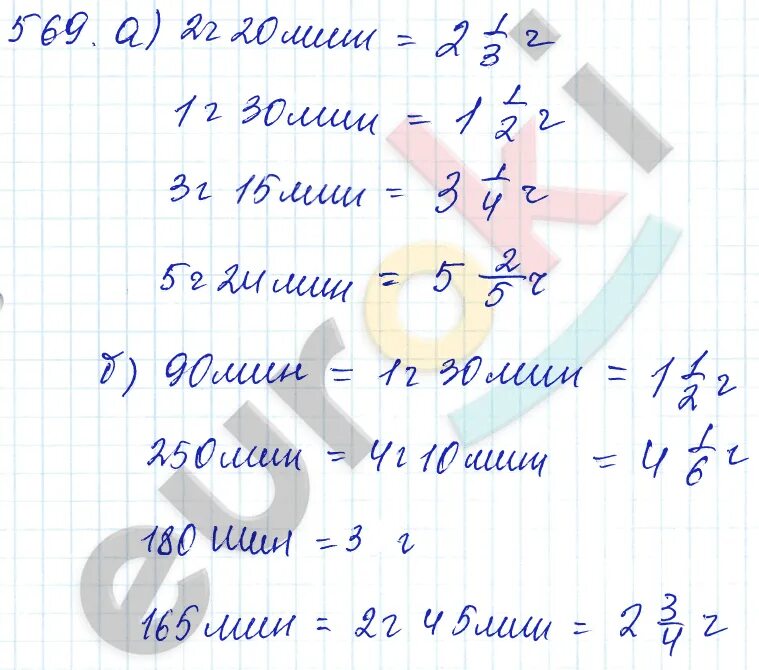 569. а) 2ч 20мин = 2 1/3 ч
1ч 30мин = 1 1/2 ч
3ч 15мин = 3 1/4 ч
5ч 24мин = 5 2/5 ч
б) 90мин = 1ч 30мин = 1 1/2 ч
250мин = 4ч 10мин = 4 1/6 ч
180мин = 3 ч
165мин = 2ч 45мин = 2 3/4 ч
euroki